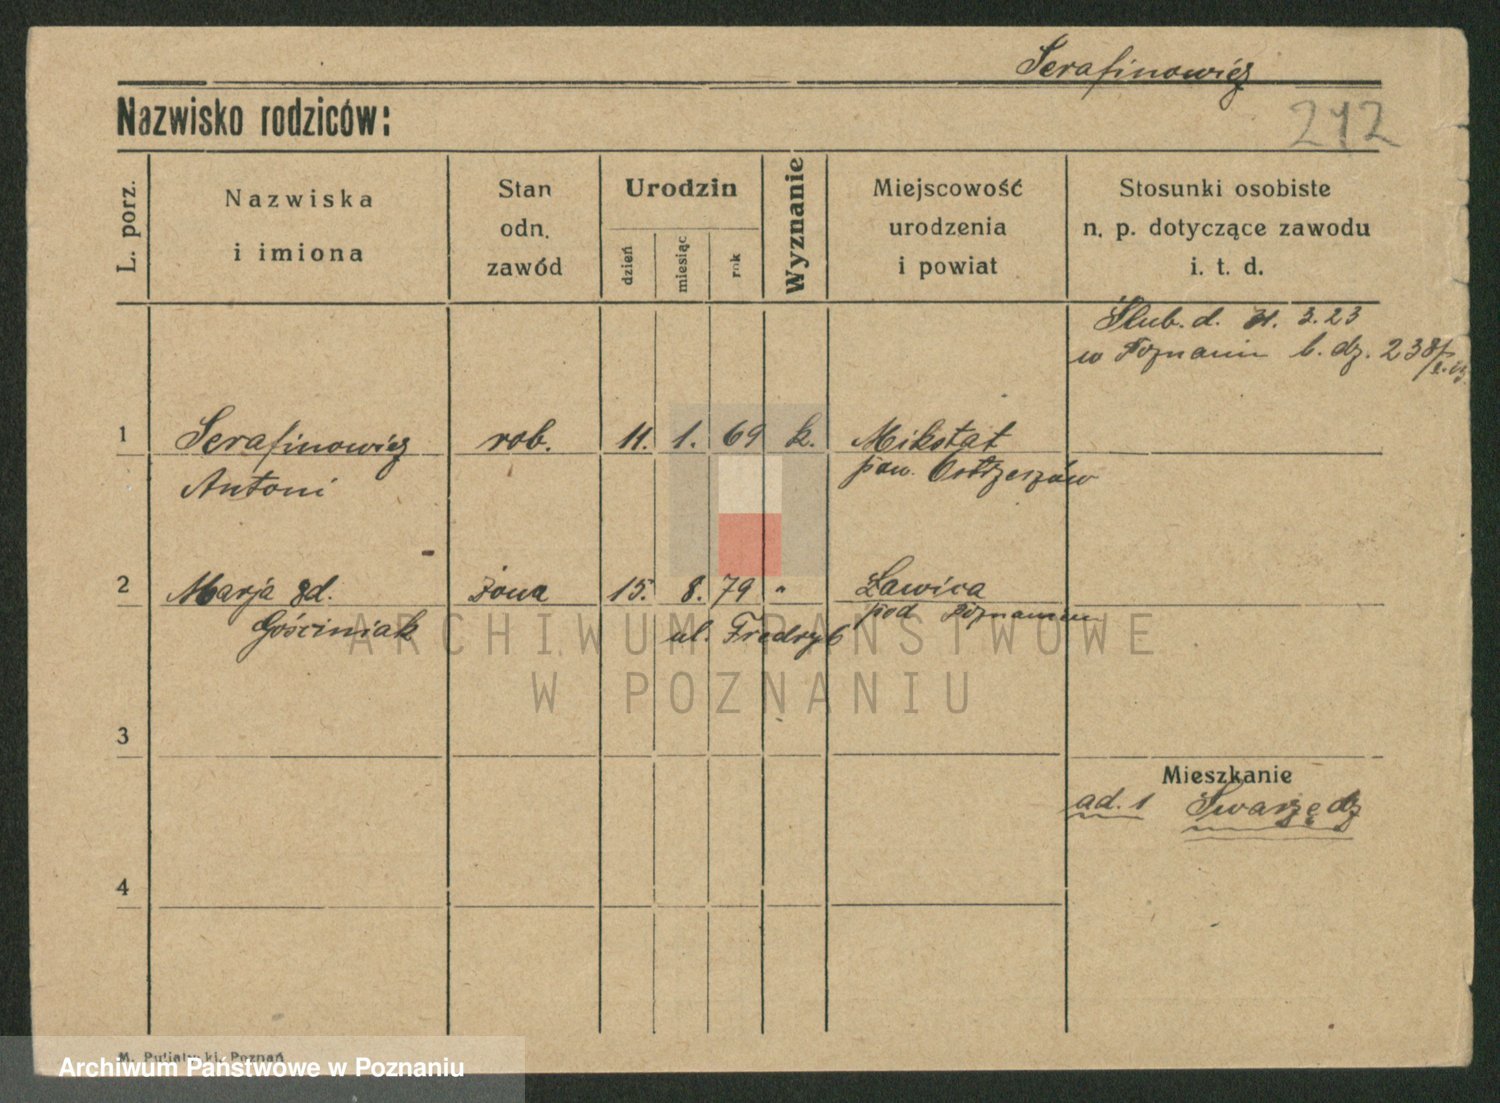 Serafinowicz
Nazwisko rodziców:
212
L. porz.
Nazwiska
i imiona
Stan
odn.
zawód
Urodzin
dzień
miesiąc
rok
Wyznanie
Miejscowość
urodzenia
i powiat
Stosunki osobiste
n. p. dotyczące zawodu
i. t. d.
Ślub. d. 31. 3. 23
w Poznaniu l. dz. 238/
1 Serafinowicz rob. 11. 1. 69 k. Mikstat
Antoni pow. Ostrzeszów
2 Marja zd. żona 15. 8. 79 " Ławica
Gościniak pod Poznaniem
ul. Fredry 6
ARCHIWUM PAŃSTWOWE
W POZNANIU
3
Mieszkanie
ad. 1 Swarzędz
4
M. Putiatycki, Poznań
Archiwum Państwowe w Poznaniu